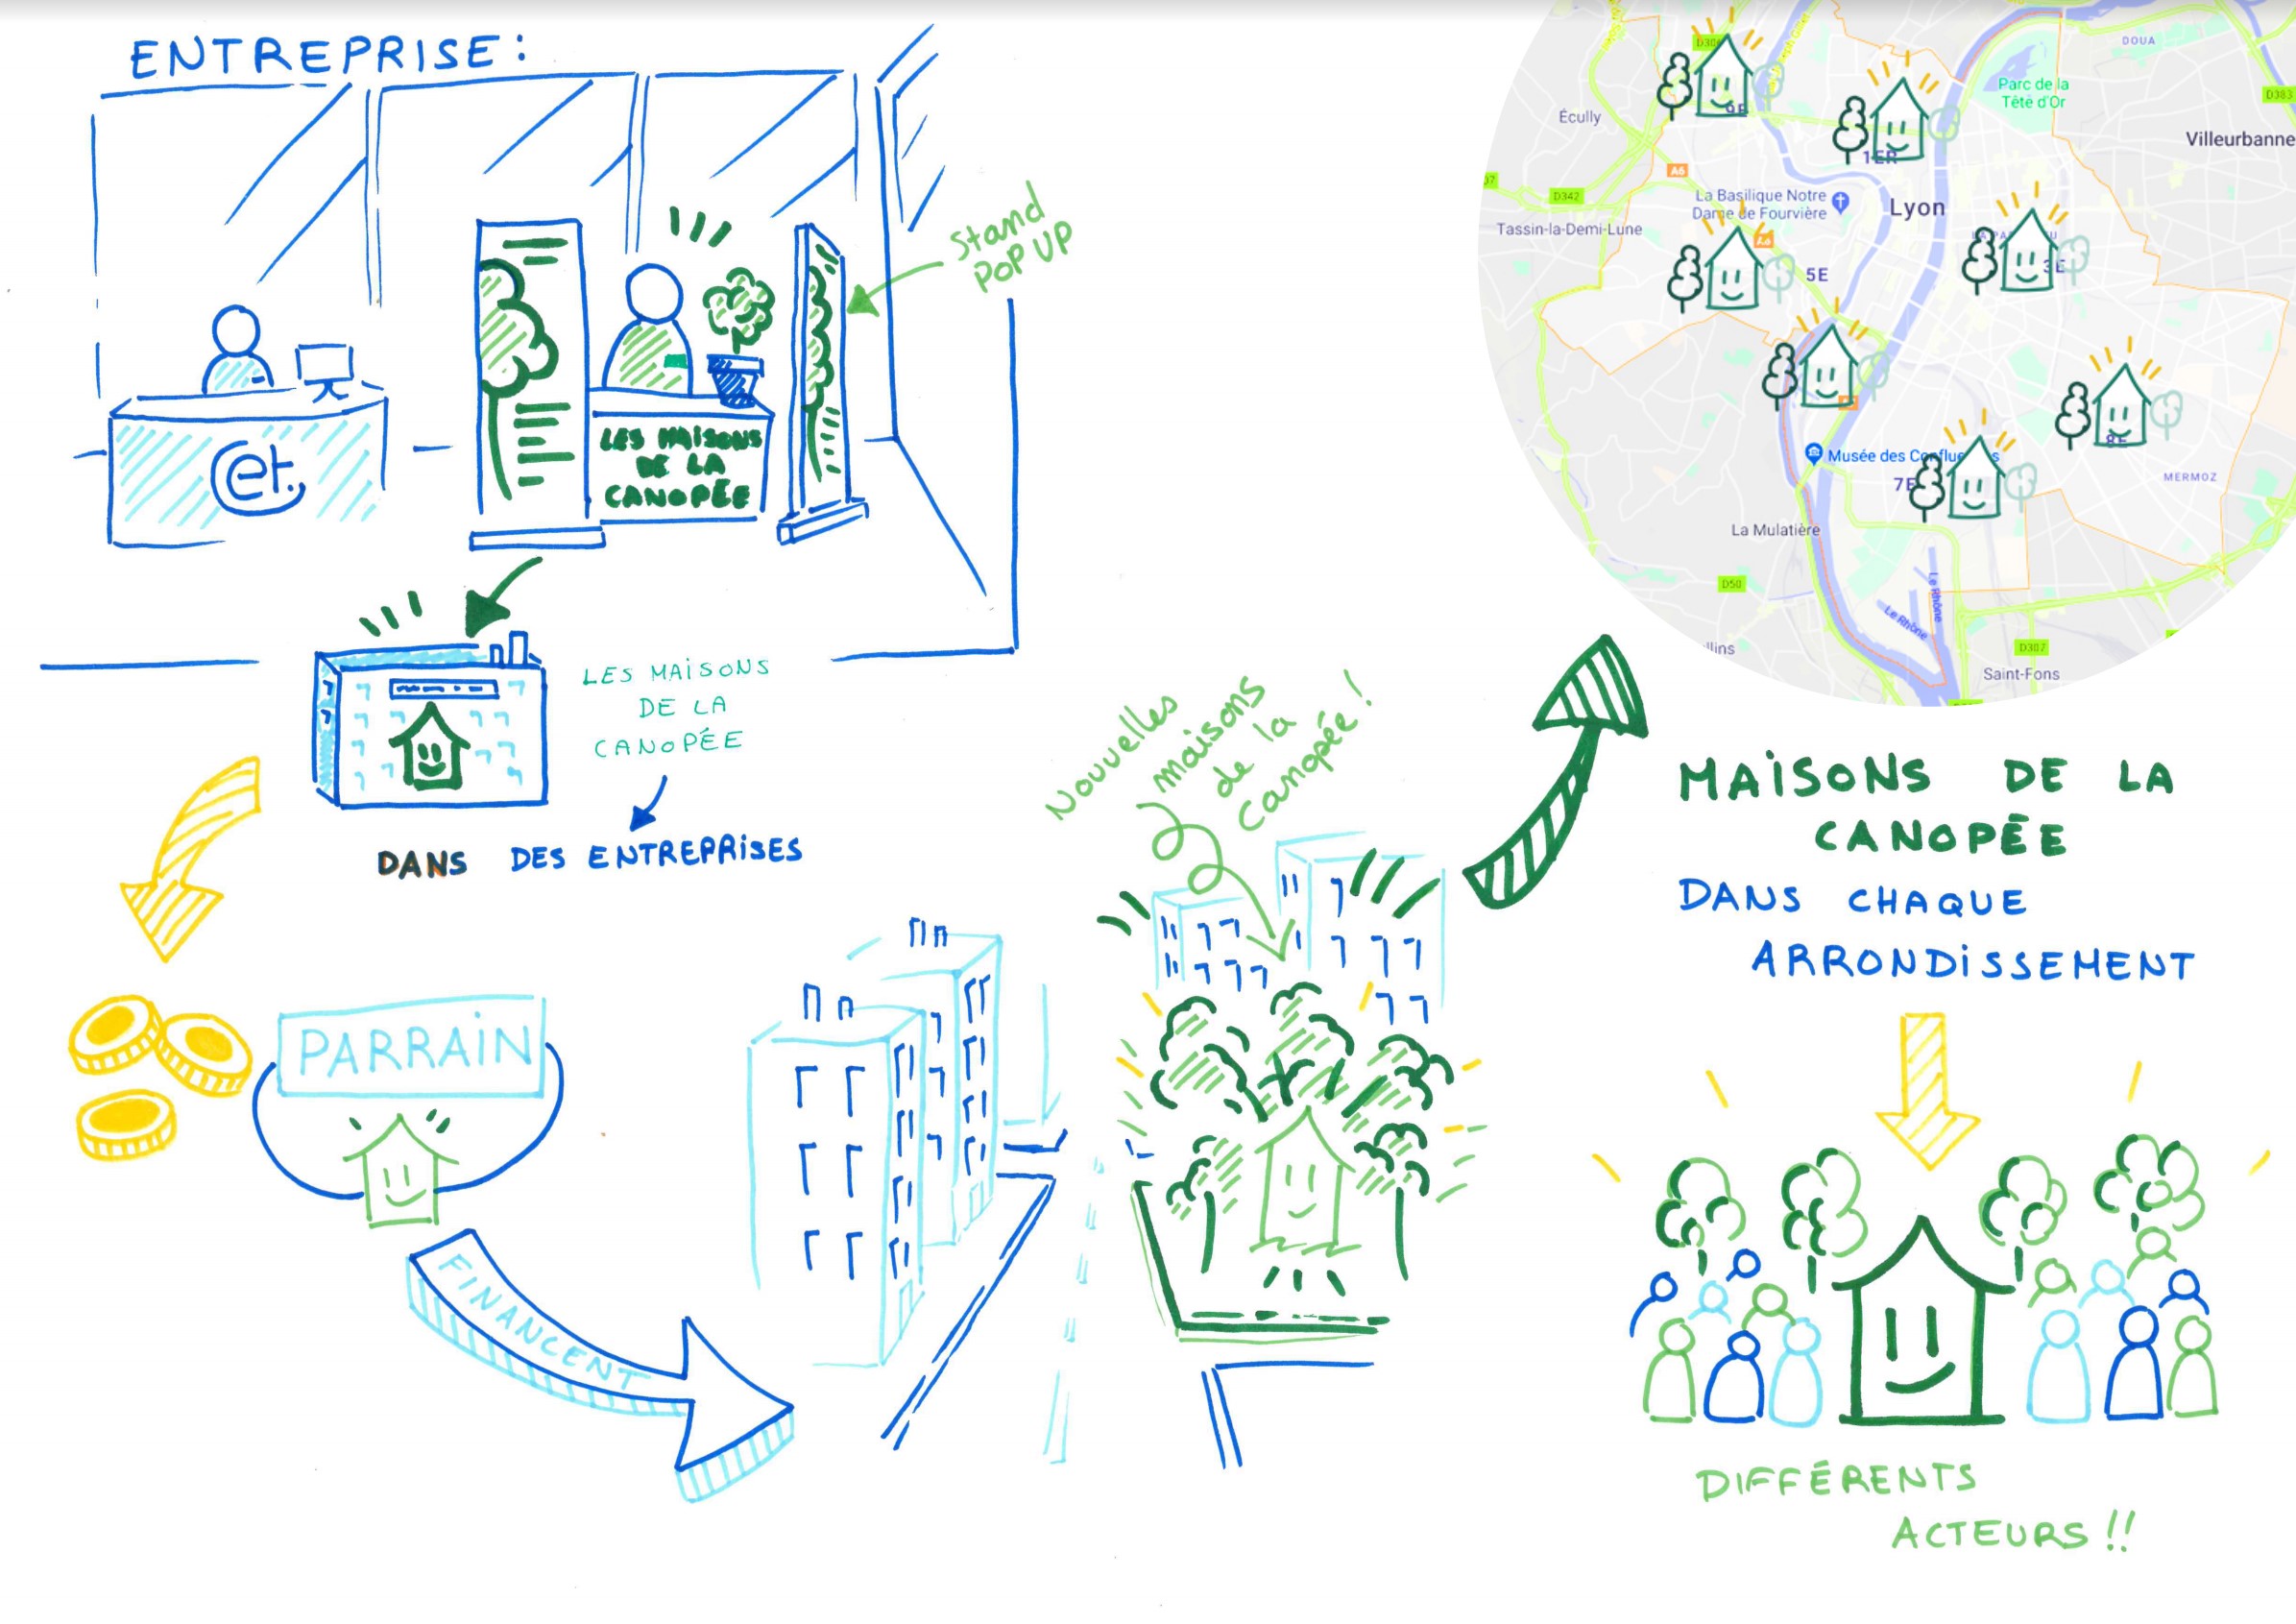 ENTREPRISE:
Stand
POP UP
et.
LES MAISONS
DE LA
CANOPÉE
LES MAISONS
DE LA
CANOPÉE
DANS DES ENTREPRISES
PARRAIN
FINANCENT
Nouvelles
maisons
de la
Canopée!
DOUA
D306
Parc de la
Tête d'Or
D383
Écully
9E
Villeurbanne
1ER
A6
D342
La Basilique Notre
Dame de Fourvière
Lyon
Tassin-la-Demi-Lune
A6
5E
3E
8E
Musée des Confluences
MERMOZ
7E
La Mulatière
D50
Le Rhône
Le Rhône
D307
Saint-Fons
MAISONS DE LA
CANOPÉE
DANS CHAQUE
ARRONDISSEMENT
DIFFÉRENTS
ACTEURS!!